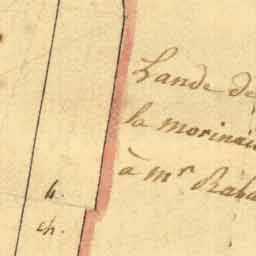 Lande de
la morinai
à mr Raba
4.
ch.